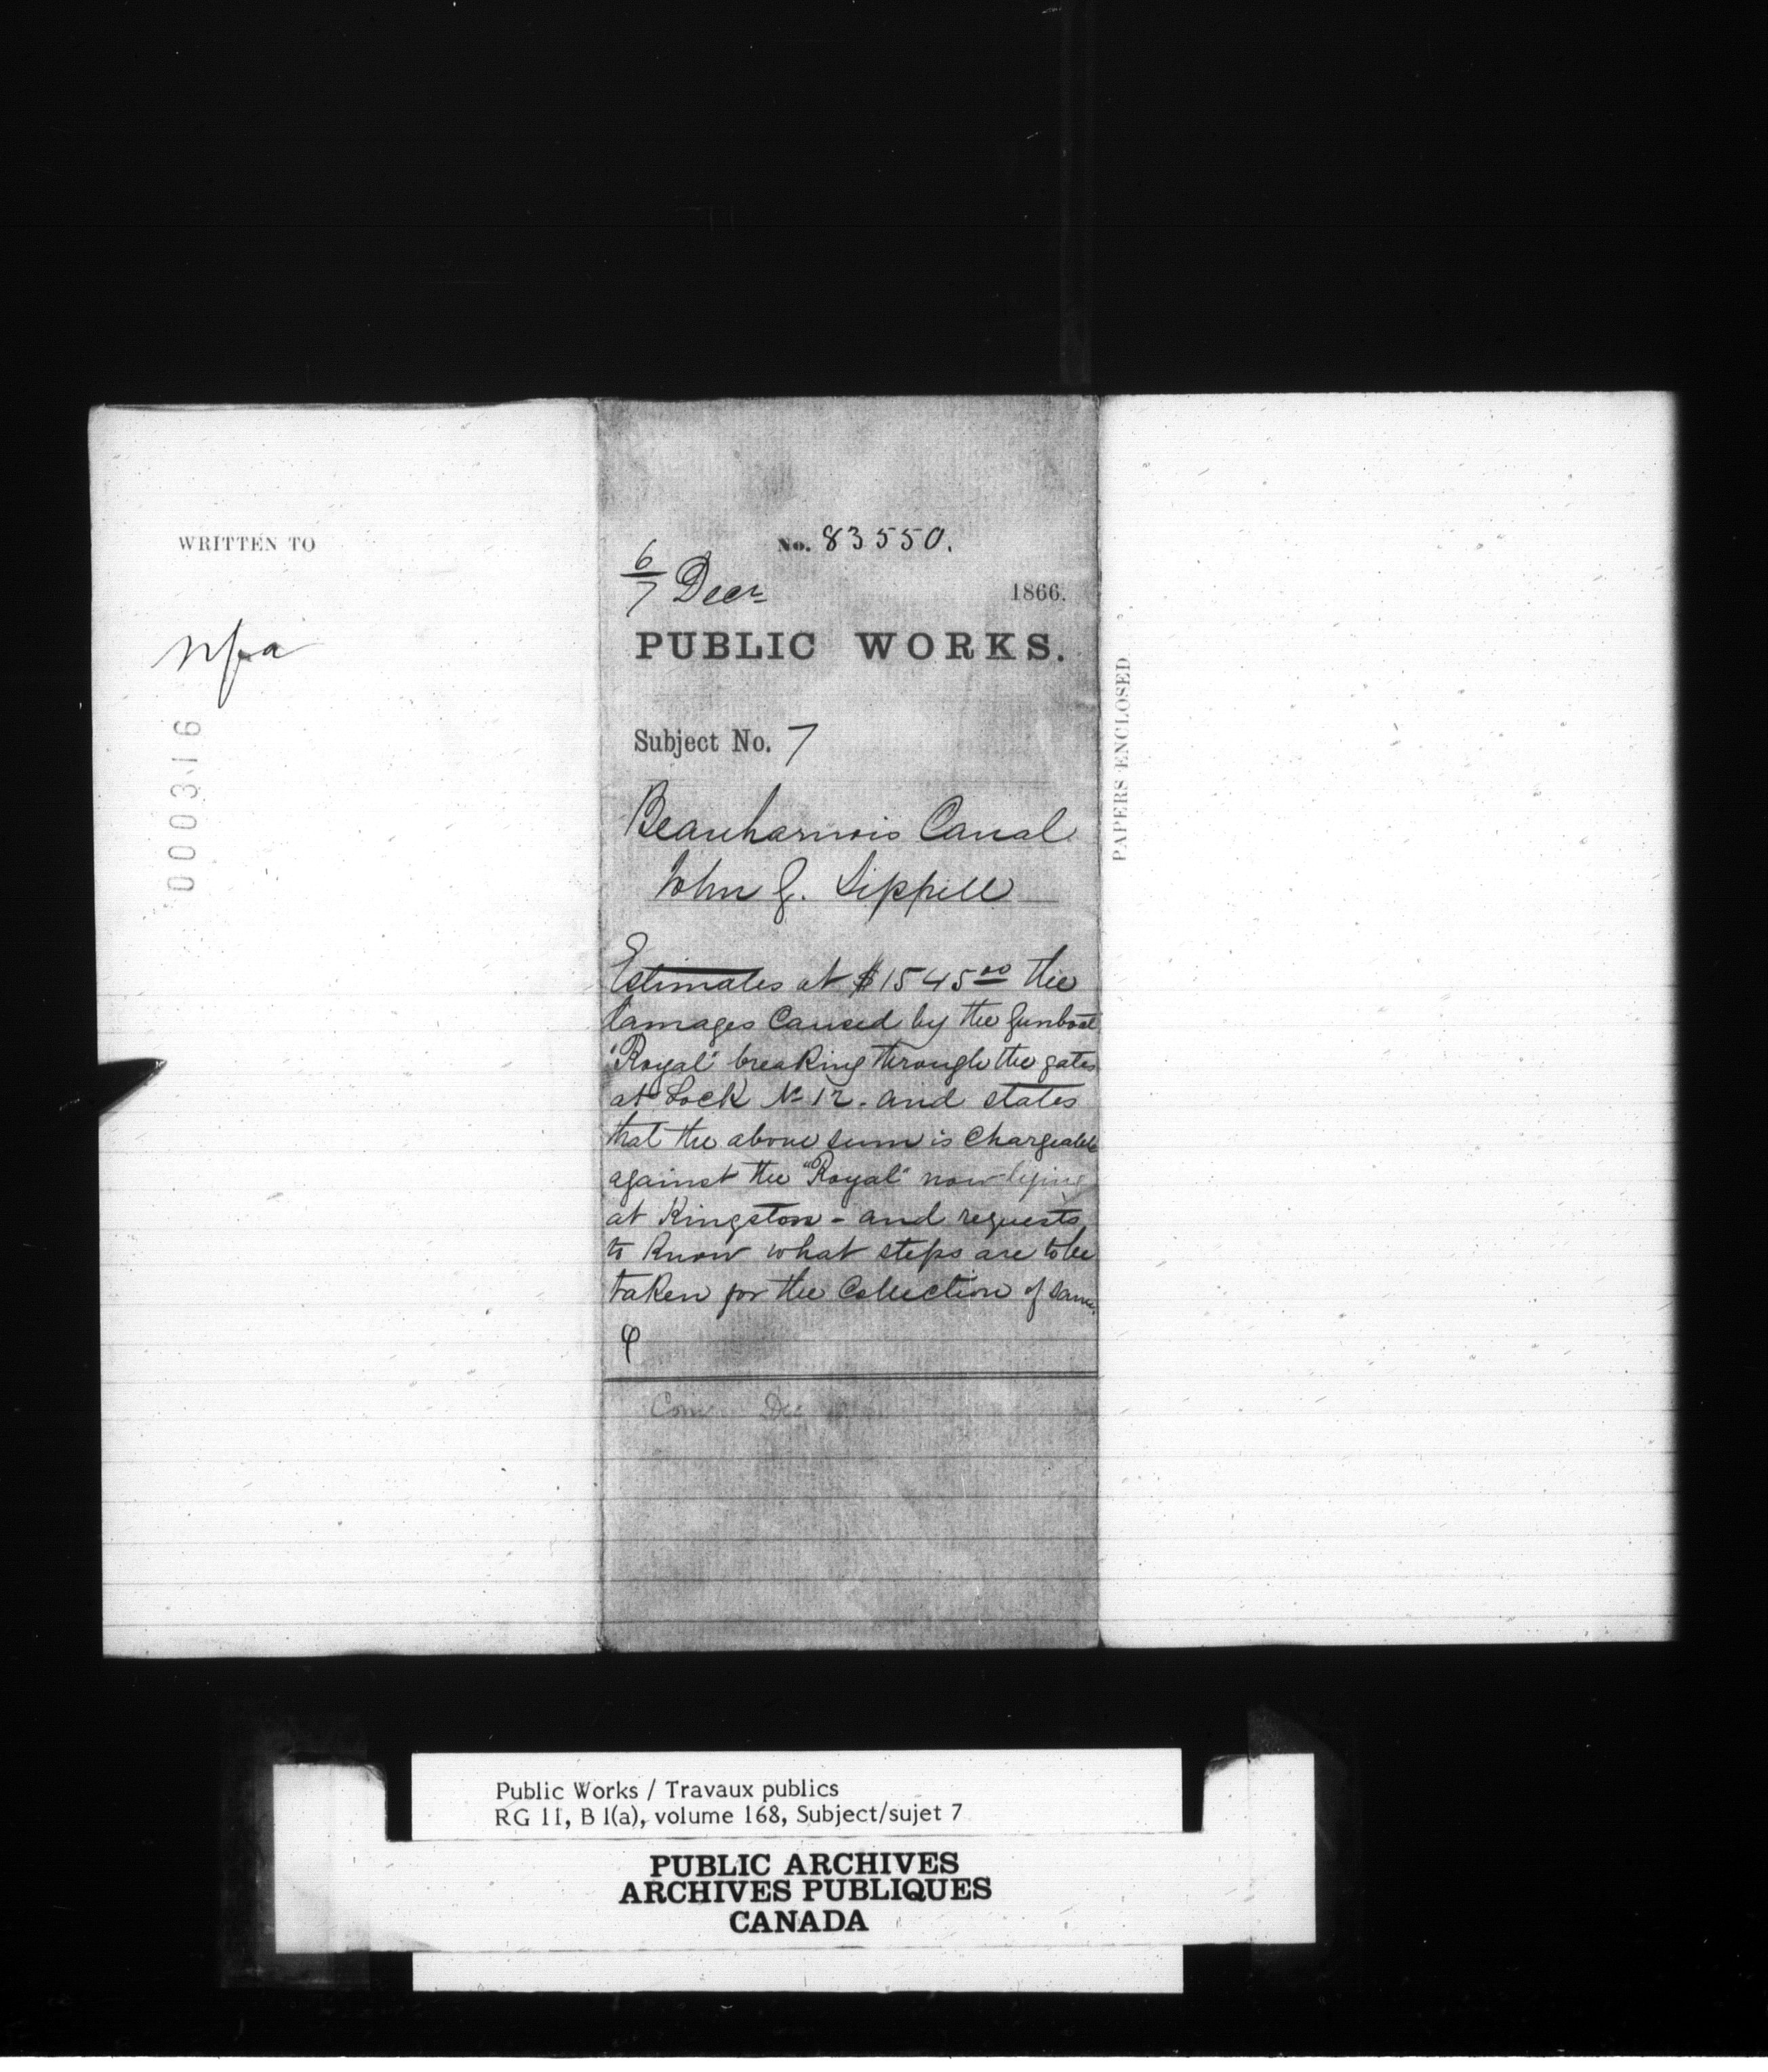 WRITTEN TO
nfa
000316
No. 83550.
6/7 Decr 1866.
PUBLIC WORKS.
Subject No. 7
Beauharnois Canal
John G. Sippell
Estimates at $1545.00 the
damages caused by the Gunboat
"Royal" breaking through the gates
at Lock No 12. and states
that the above sum is chargeable
against the "Royal" now lying
at Kingston - and requests
to know what steps are to be
taken for the collection of same.
Com Dec
PAPERS ENCLOSED
Public Works / Travaux publics
RG 11, B 1(a), volume 168, Subject/sujet 7
PUBLIC ARCHIVES
ARCHIVES PUBLIQUES
CANADA